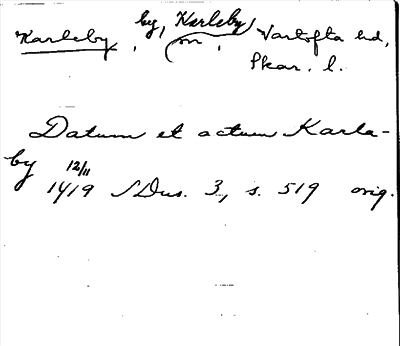 Karleby, by, Karleby sn, Vartofta hd,
Skar. l.
Datum et actum Karla-
by 12/11
1419 SDns. 3, s. 519 orig.